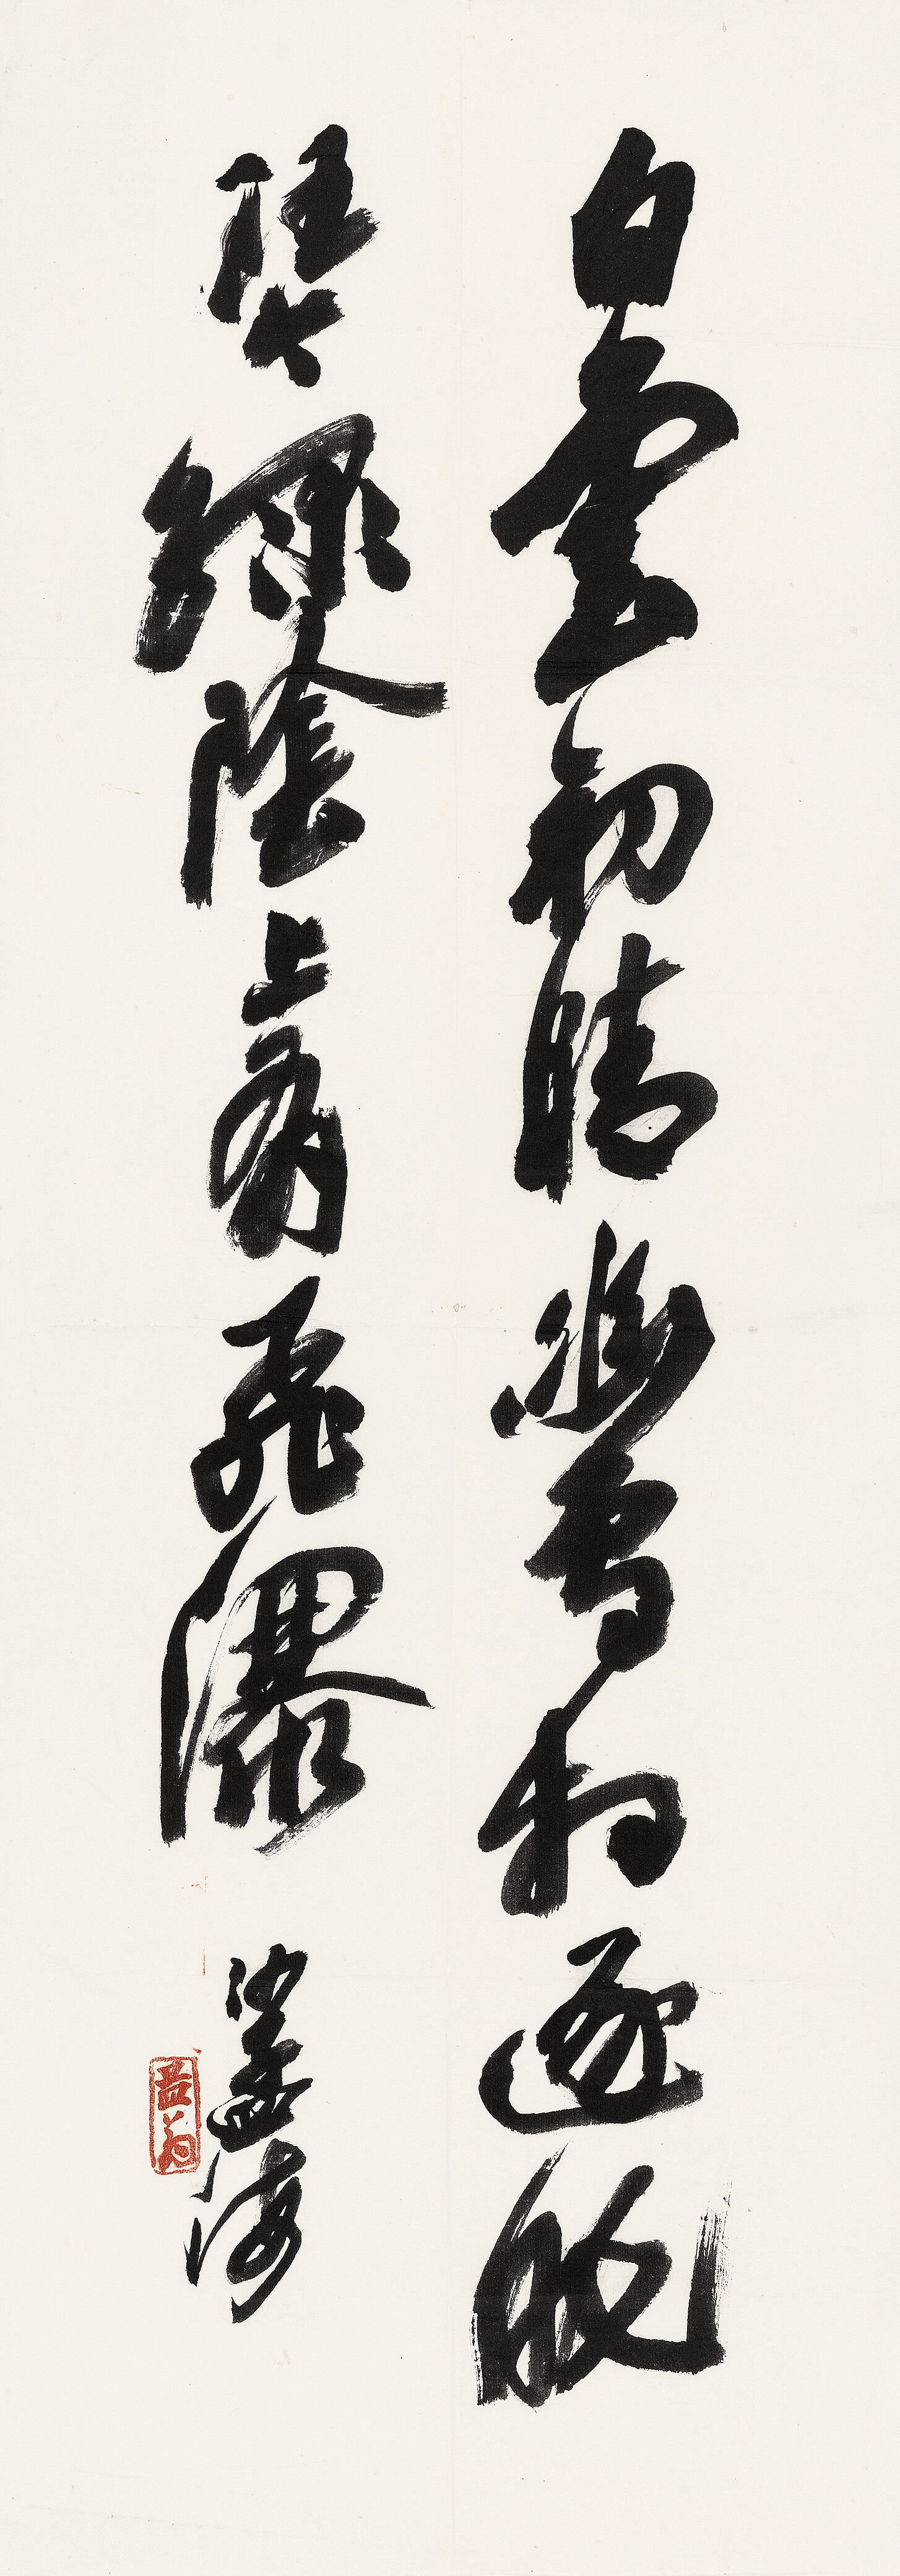 白雲初晴幽鳥相逐眠
琴綠陰上有飛瀑
沙孟海